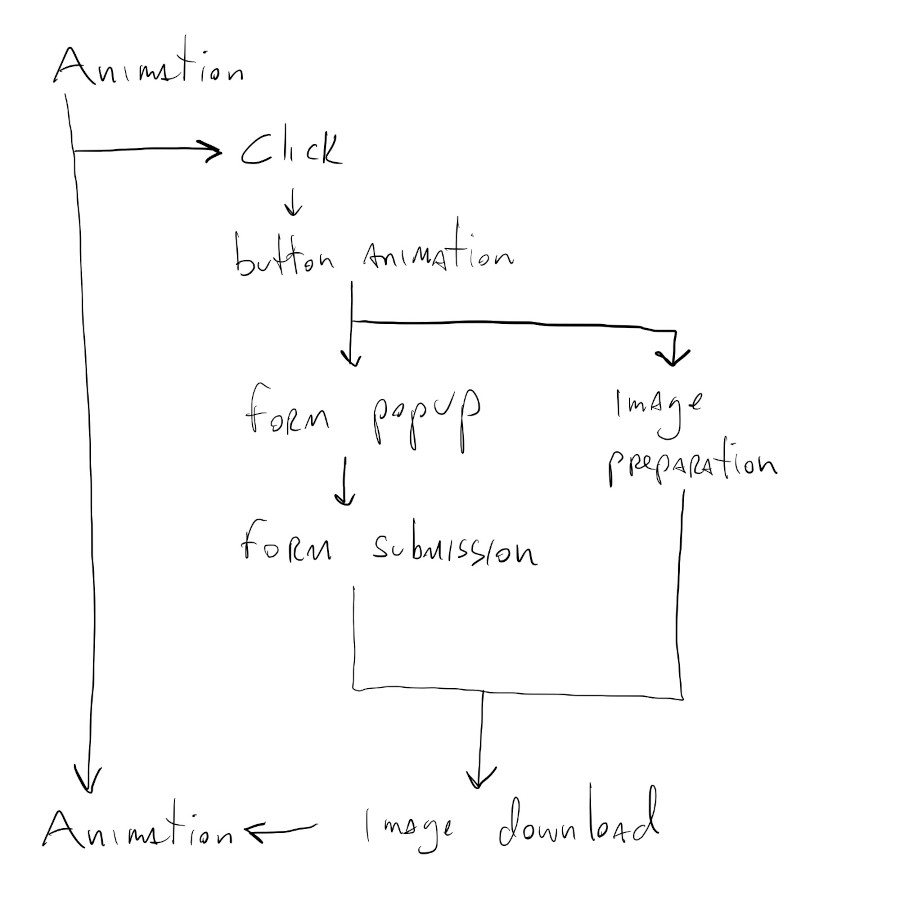 Animation
Click
button animation
form popup
Image
preparation
form submission
Animation
Image download